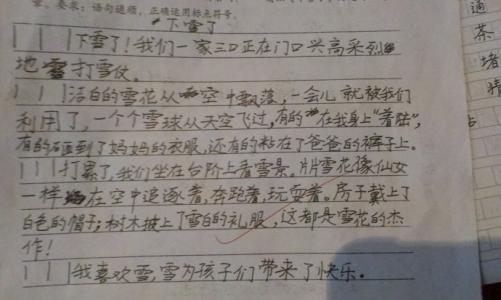 求：语句通顺，正确运用标点符号。
下雪了
下雪了！我们一家三口正在门口兴高采烈
地打雪仗。
洁白的雪花从空中飘落，一会儿就被我们
利用了，一个个雪球从天空飞过，有的在我身上“着陆”，
有的砸到了妈妈的衣服，还有的粘在了爸爸的裤子上。
打累了，我们坐在台阶上看雪景。片片雪花像仙女
一样在空中追逐着，奔跑着，玩耍着。房子戴上了
白色的帽子；树木披上了雪白的礼服，这都是雪花的杰
作！
我喜欢雪，雪为孩子们带来了快乐。
适
茶
堵
情